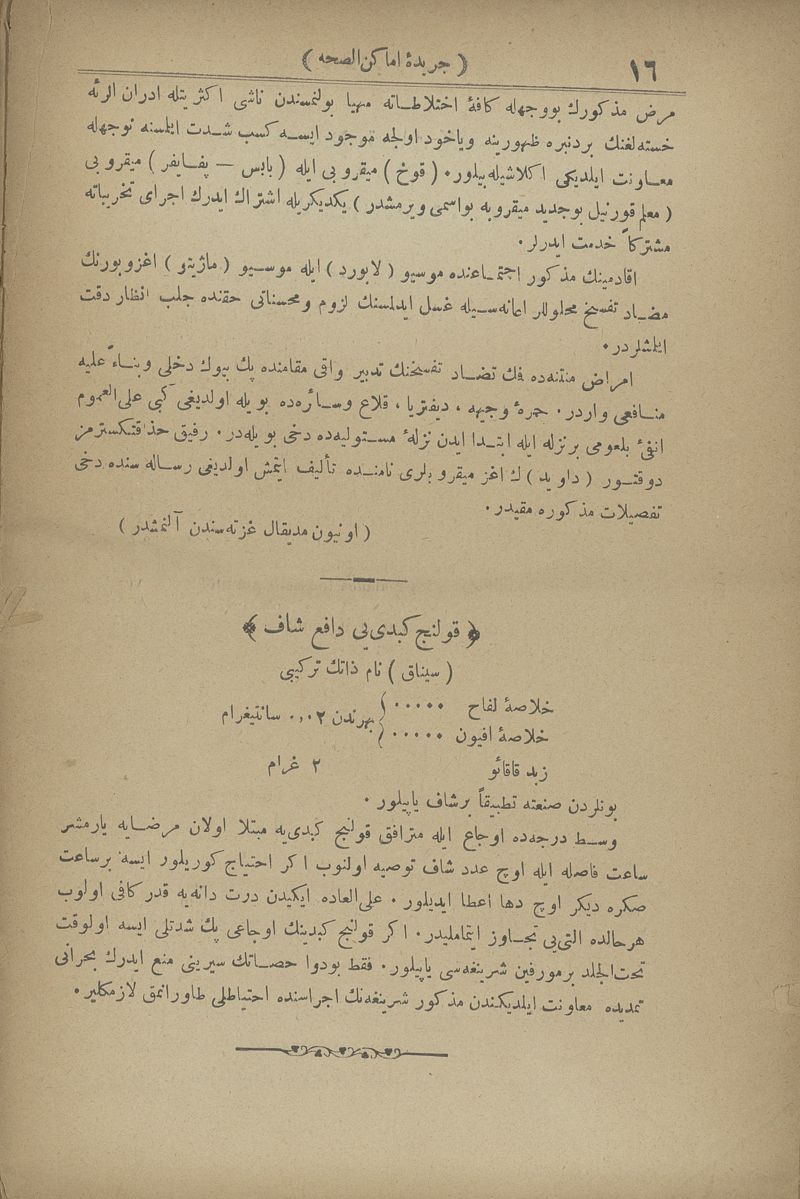 ١٦
( جريدهٔ اماكن الصحه )
مرض مذكورك بووجهله كافهٔ اختلاطاته مهيا بولنمسندن ناشی اكثريتله ادران الرئه
خسته‌لغنك بردنبره ظهورينه وياخود اولجه موجود ايسه كسب شدت ايلمسنه بوجهله
معاونت ايلديكی اكلاشيله‌بيلور. ( قوخ ) ميقروبی ايله ( بابس — پفايفر ) ميقروبی
( معلم قورنيل بوجديد ميقروبه بواسمی ويرمشدر ) يكديكريله اشتراك ايدرك اجرای تخريباته
مشتركاً خدمت ايدرلر.
اقادمينك مذكور اجتماعنده موسيو ( لابورد ) ايله موسيو ( ماژيتو ) اغزوبورنك
مضاد تفسخ محلوللر اعانه‌سيله غسل ايدلمسنك لزوم ومحسناتی حقنده جلب انظار دقت
ايلمشلردر.
امراض منتنه‌ده فك تضاد تفسخنك تدبير واقی مقامنده پك بيوك دخلی وبناءً عليه
منافعی واردر. حمرهٔ وجيهه ، ديفتريا ، قلاع وسائره‌ده بويله اولديغی كبی علی العموم
انفیٔ بلعومی برنزله ايله ابتدا ايدن نزلهٔ مستوليه‌ده دخی بويله‌در. رفيق حذاقتكسترمز
دوقتور ( داويد ) ك اغز ميقروبلری نامنده تأليف ايتمش اولديغی رساله‌سنده دخی
تفصيلات مذكوره مقيددر.
( اونيون مديقال غزته‌سندن آلنمشدر )
﴿ قولنج كبدی‌يی دافع شاف ﴾
( سيناق ) نام ذاتك تركيبی
خلاصهٔ لفاح ..... } بهرندن ٠,٠٢ سانتيغرام
خلاصهٔ افيون ..... }
زبد قاقائو ٢ غرام
بونلردن صنعته تطبيقاً برشاف ياپيلور .
وسط درجه‌ده اوجاع ايله مترافق قولنج كبدی‌يه مبتلا اولان مرضايه يارمشر
ساعت فاصله ايله اوچ عدد شاف توصيه اولنوب اكر احتياج كوريلور ايسه برساعت
صكره ديكر اوچ دها اعطا ايديلور . علی العاده ايكيدن درت دانه‌يه قدر كافی اولوب
هرحالده التی‌يی تجاوز ايتمامليدر. اكر قولنج كبدينك اوجاعی پك شدتلی ايسه اولوقت
تحت الجلد برمورفين شرينغه‌سی ياپيلور. فقط بودوا حصاتك سيرينی منع ايدرك بحرانی
تمديده معاونت ايلديكندن مذكور شرينغه‌نك اجراسنده احتياطلی طاورانمق لازمكلير.